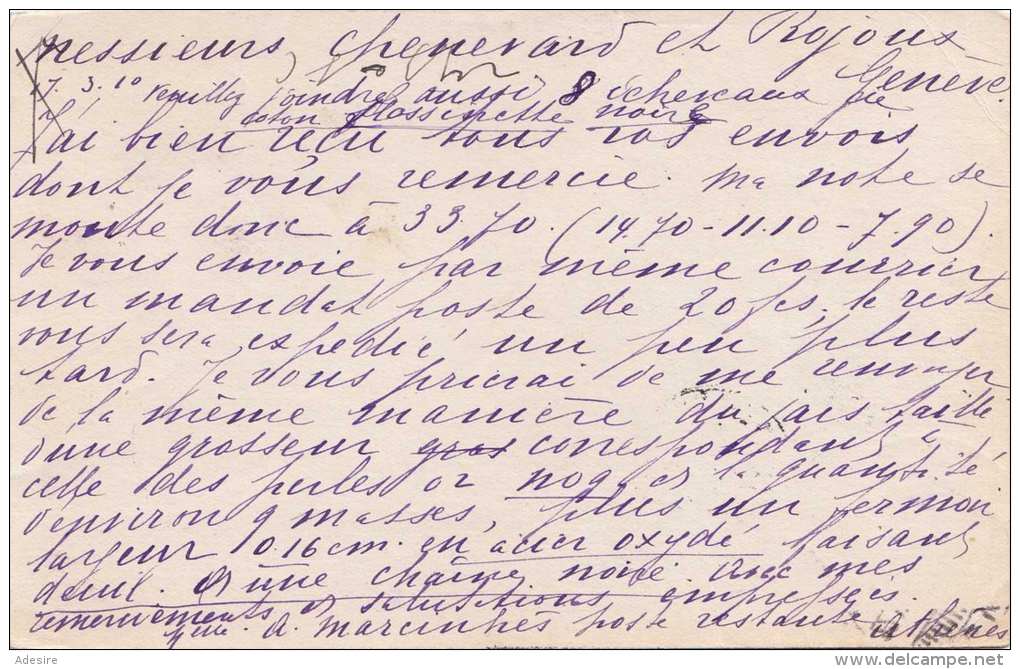 Messieurs, Chenevard et Rojoux
Genève.
7. 3. 10 Veuillez joindre aussi 8 écheveaux fil
coton noire
J'ai bien reçu tous vos envois
dont je vous remercie. Ma note se
monte donc à 33.70. (14.70 - 11.10 - 7.90).
Je vous envoie par même courrier
un mandat poste de 20 fcs, le reste
vous sera expédié un peu plus
tard. Je vous prierai de me renvoyer
de la même manière du jais taillé
d'une grosseur gros correspondant à
celle des perles or no 9 et la quantité
d'environ 9 masses, plus un fermoir
largeur 0.16 cm. en acier oxydé faisant
deuil. Et une chaîne noire. Avec mes
remerciements et salutations empressées.
Melle. A. Marcinhès poste restante Athènes
Adesire
delcampe.net